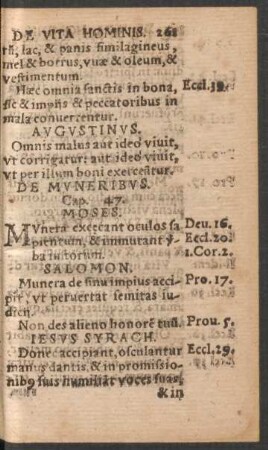 DE VITA HOMINIS. 261
rū, lac, & panis similagineus,
mel & botrus, vuæ & oleum, &
vestimentum.
Hæc omnia sanctis in bona, Eccl.39.
sic & impiis & peccatoribus in
mala conuertentur.
AVGVSTINVS.
Omnis malus aut ideo viuit,
vt corrigatur: aut ideo viuit,
vt per illum boni exerceātur.
DE MVNERIBVS.
Cap. 47.
MOSES.
MVnera excęcant oculos sa Deu. 16.
pientum, & immutant ỹ Eccl.20.
ba iustorum. 1.Cor.2.
SALOMON.
Munera de sinu impius acci- Pro. 17.
pit, vt peruertat semitas iu-
dicij.
Non des alieno honorē tuū. Prou. 5.
IESVS SYRACH.
Donec accipiant, osculantur Eccl.29.
manus dantis, & in promissio-
nibꝰ suis humiliāt voces suas,
& in